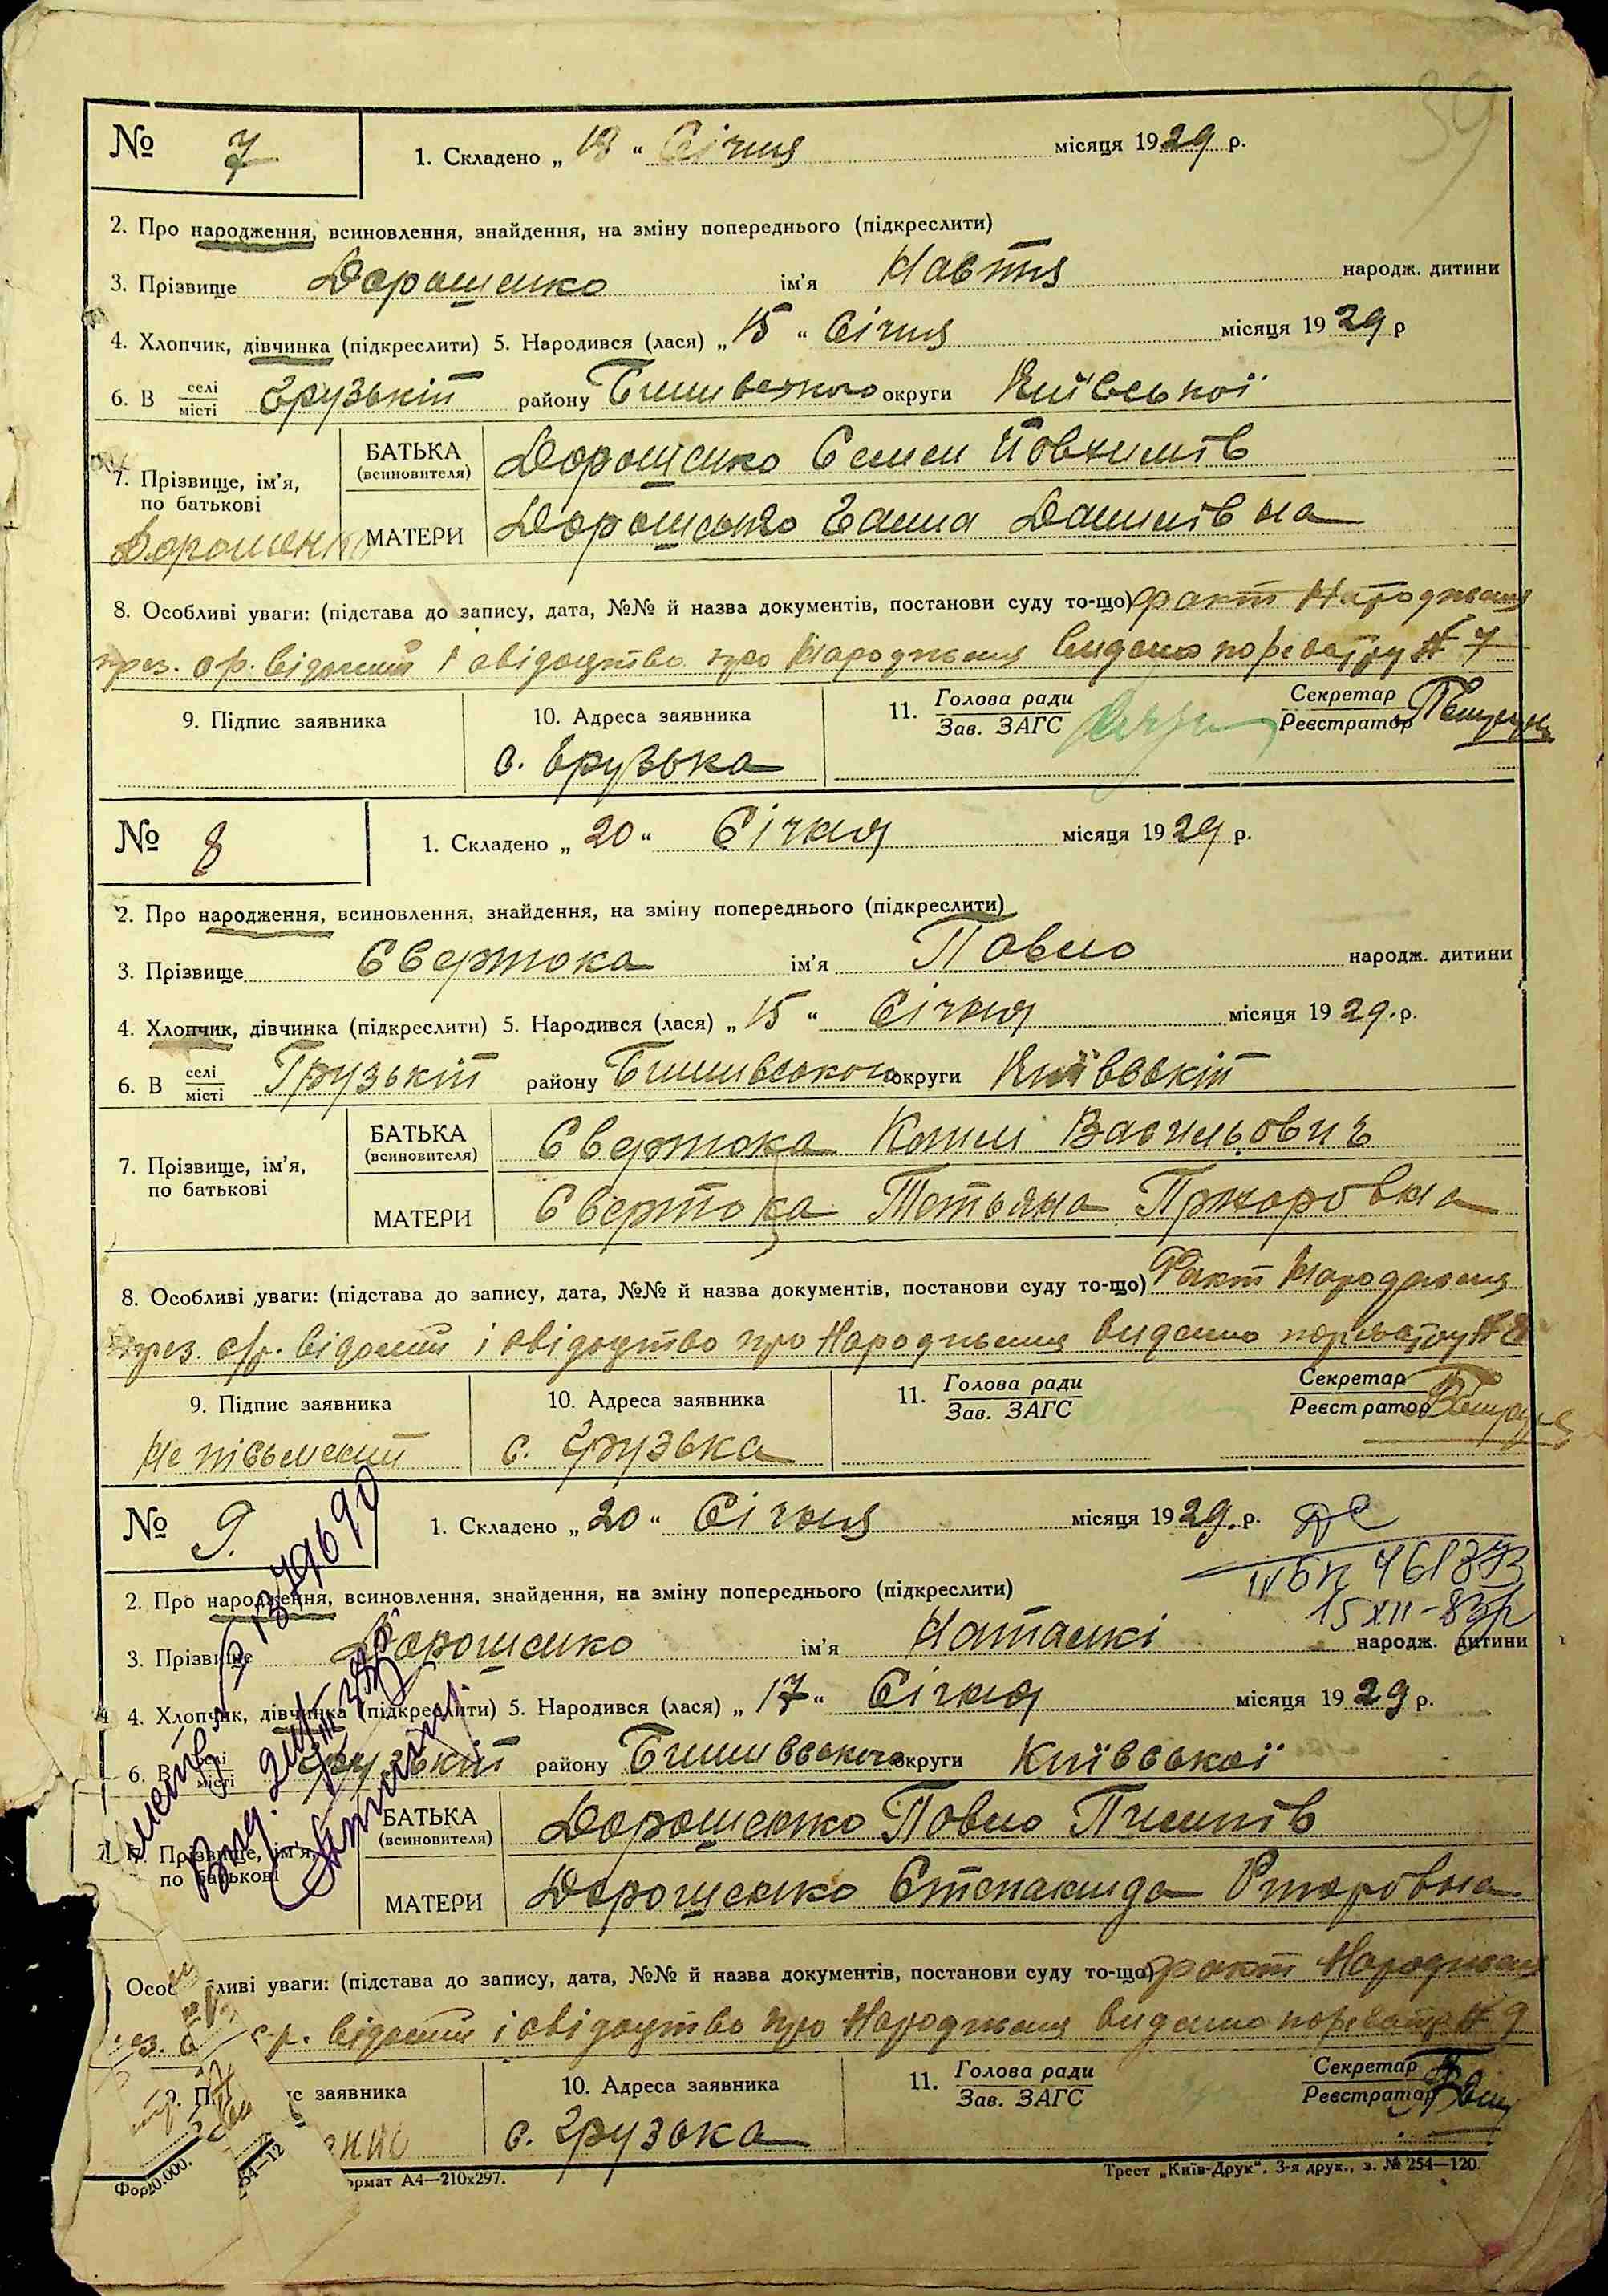 39
№ 7 1. Складено „ 18 “ Січня місяця 1929 р.
2. Про народження, всиновлення, знайдення, на зміну попереднього (підкреслити)
3. Прізвище Дорошенко ім'я Настя народж. дитини
4. Хлопчик, дівчинка (підкреслити) 5. Народився (лася) „ 15 “ Січня місяця 1929 р
6. В селі місті Грузькій району округи Київської
БАТЬКА (всиновителя) Дорошенко Семен
7. Прізвище, ім'я, по батькові
Дорошенко МАТЕРИ Дорошенко Ганна Данилівна
8. Особливі уваги: (підстава до запису, дата, №№ й назва документів, постанови суду то-що) факт Народження
през. с/р. відомий і свідоцтво про Народження видано по реєстру № 7
9. Підпис заявника 10. Адреса заявника 11. Голова ради Зав. ЗАГС Секретар Реєстратор
с. Грузька
№ 8 1. Складено „ 20 “ Січня місяця 1929 р.
2. Про народження, всиновлення, знайдення, на зміну попереднього (підкреслити)
3. Прізвище Свертока ім'я Павло народж. дитини
4. Хлопчик, дівчинка (підкреслити) 5. Народився (лася) „ 15 “ Січня місяця 1929. р.
6. В селі місті Грузькій району округи Київській
БАТЬКА (всиновителя) Свертока Васильович
7. Прізвище, ім'я, по батькові
МАТЕРИ Свертока Тетьяна
8. Особливі уваги: (підстава до запису, дата, №№ й назва документів, постанови суду то-що) Факт Народження
през. с/р. відомий і свідоцтво про Народження видано по реєстру № 8
9. Підпис заявника 10. Адреса заявника 11. Голова ради Зав. ЗАГС Секретар Реєстратор
Не письменний с. Грузька
№ 9. 1. Складено „ 20 “ Січня місяця 1929. р.
2. Про народження, всиновлення, знайдення, на зміну попереднього (підкреслити)
15 XII-83р
3. Прізвище Дорошенко ім'я народж. дитини
4. Хлопчик, дівчинка (підкреслити) 5. Народився (лася) „ 17 “ Січня місяця 1929 р.
6. В селі місті Грузькій району округи Київської
БАТЬКА (всиновителя) Дорошенко Павло Пилипів
7. Прізвище, ім'я, по батькові
МАТЕРИ Дорошенко
Особливі уваги: (підстава до запису, дата, №№ й назва документів, постанови суду то-що) факт Народження
с/р. відомий і свідоцтво про Народження видано по реєстр № 9
заявника 10. Адреса заявника 11. Голова ради Зав. ЗАГС Секретар Реєстратор
с. Грузька
Формат А4—210х297. Трест „Київ-Друк“. 3-я друк., з. № 254—120.